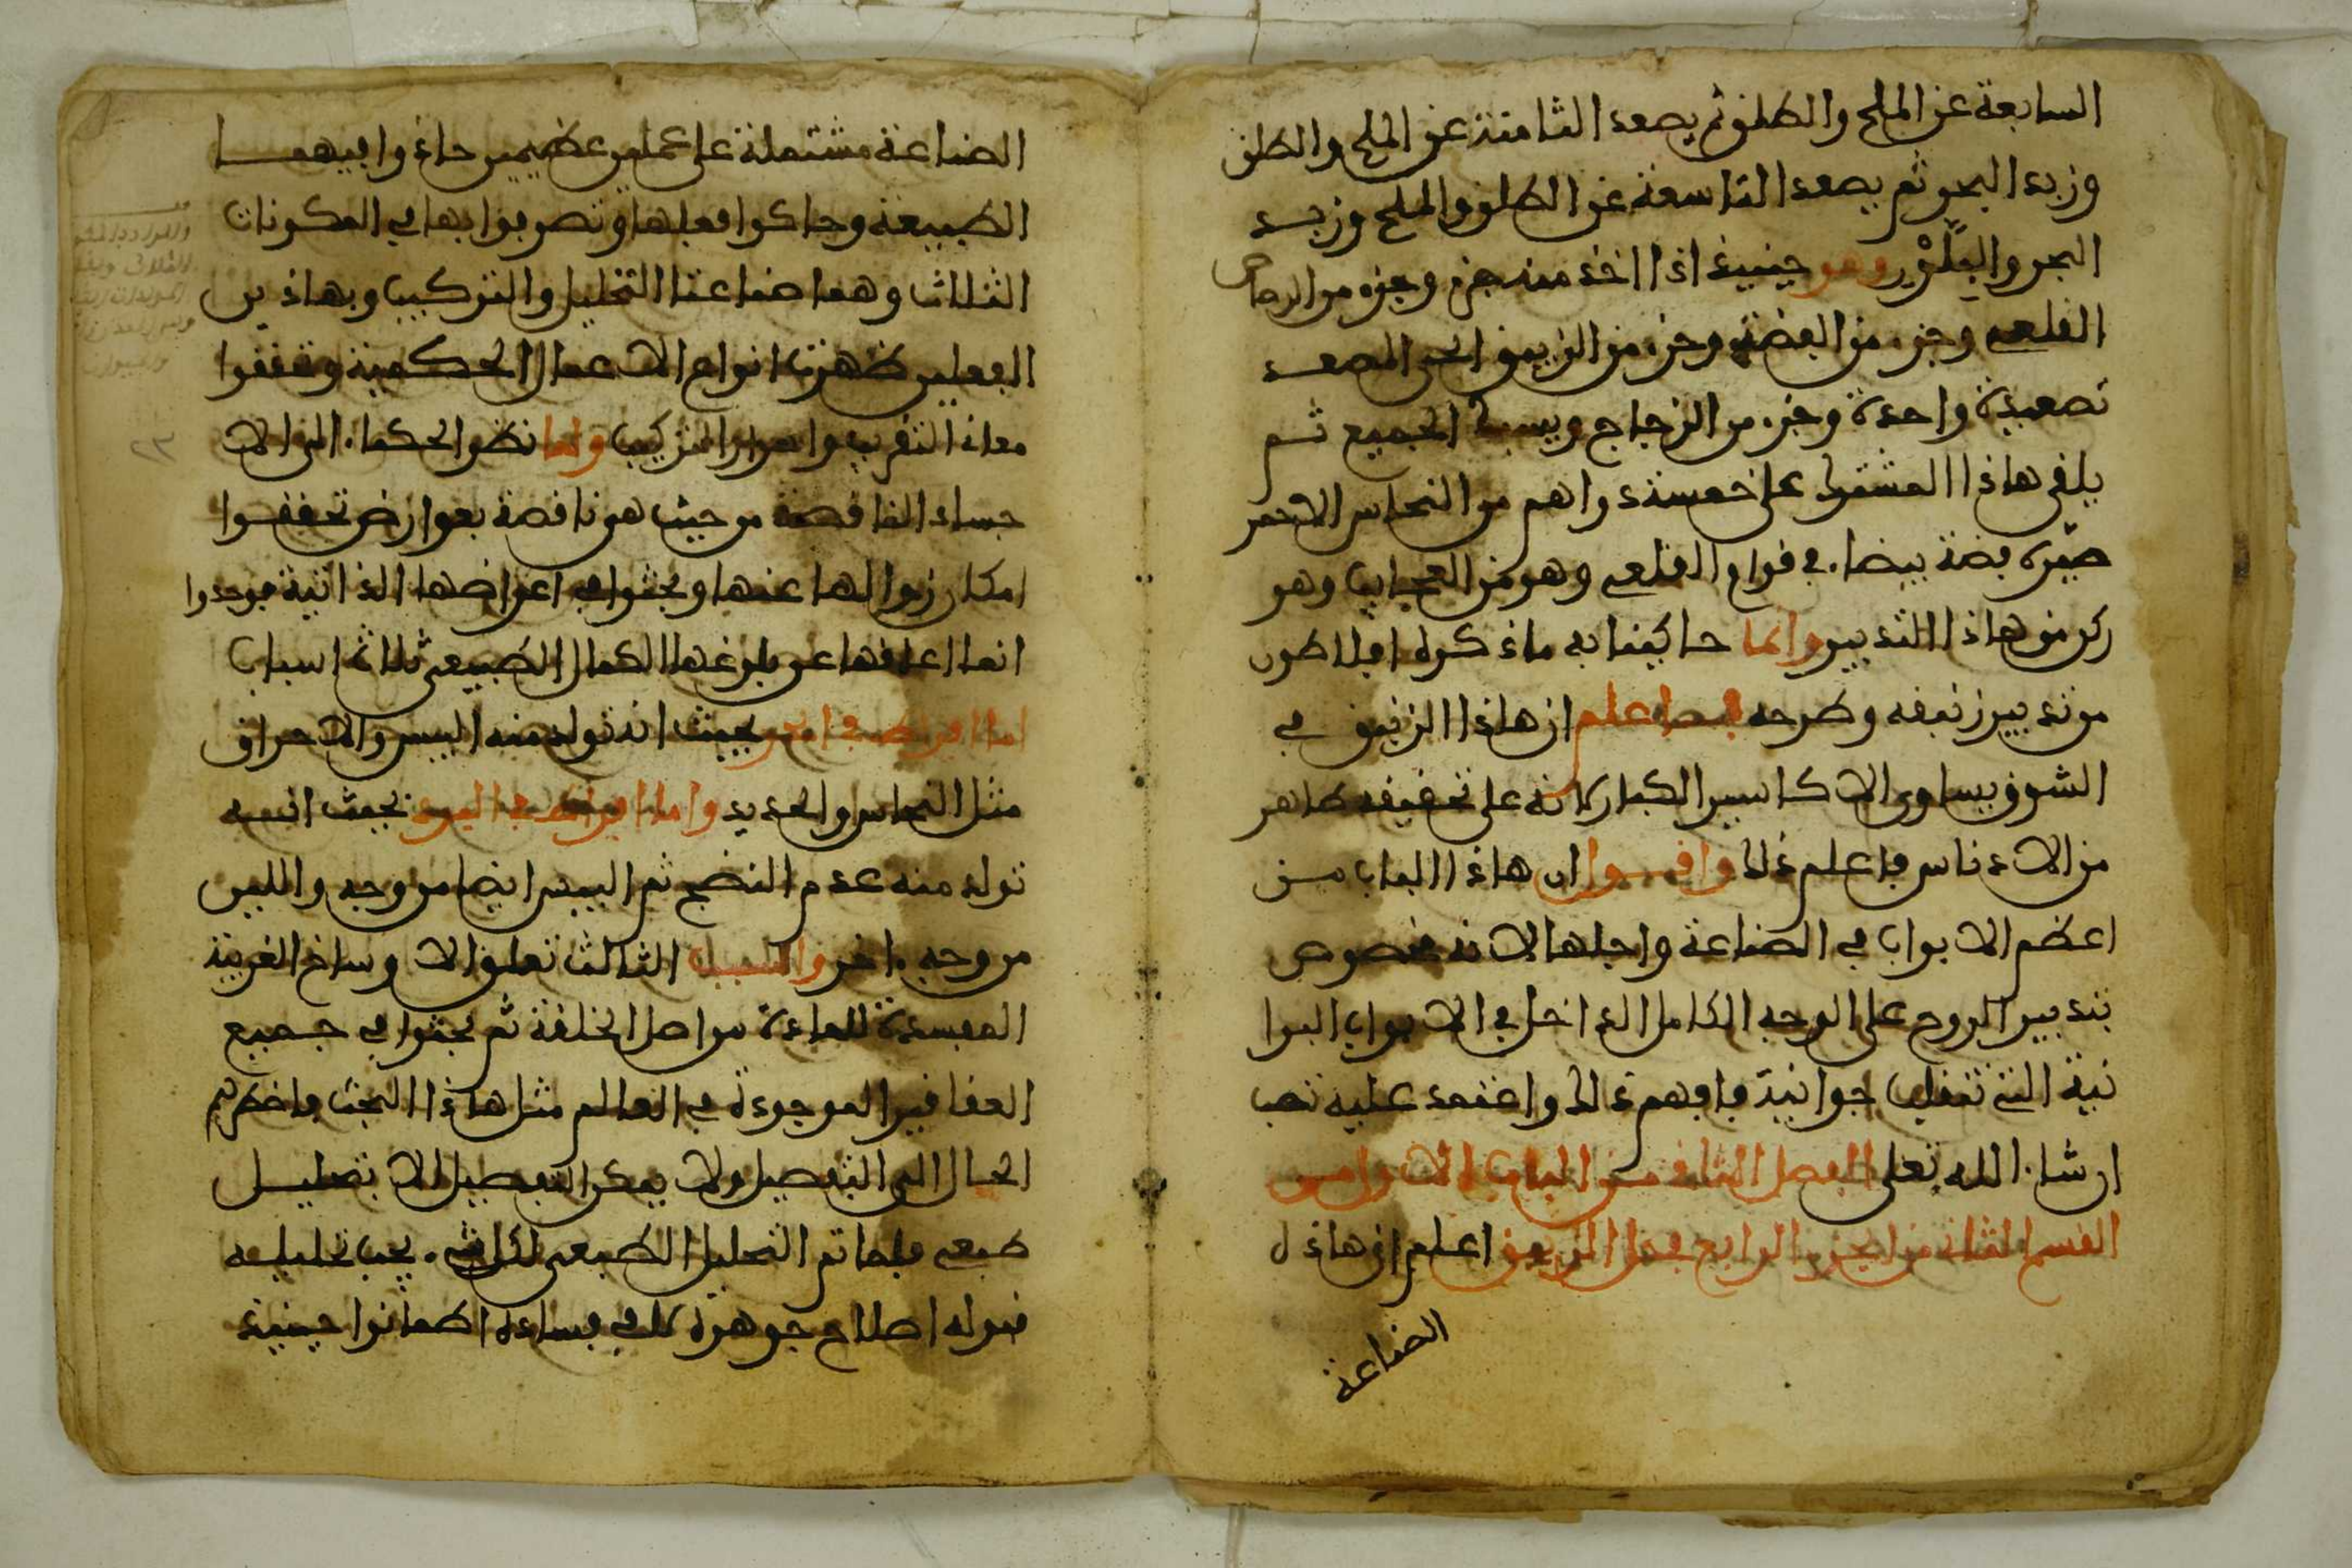 السابعة عن الملح والطلق ثم يصعد الثامنة عن الملح والطلق
وزبد البحر ثم يصعد التاسعة عن الطلق والملح وزبد
البحر والبلَّوْر وهو حينيذ اذا اخذ منه جزء وجزء من الرصاص
القلعي وجزء من الفضة وجزء من الزيبق الحي المصعد
تصعيدة واحدة وجزء من الزجاج ويسبك الجميع ثم
يلقى هاذا المشترك على خمسة دراهم من النحاس الاحمر
صيّره فضة بيضاء في قوام القلعي وهو من العجايب وهو
ركن من هاذا التدبير وانما حاكينا به ماذكره افلاطون
من تدبير زيبقه وطرحه فصل اعلم ان هاذا الزيبق في
الشرف يساوي الاكاسير الكبار لانه على تحقيقه طاهر
من الادناس فاعلم ذلك وافـول ان هاذا الباب من
اعظم الابواب في الصناعة واجلها لانه مخصوص
بتدبير الروح على الوجه الكامل الداخل في الابواب البرا
نية التي تنقلب جوانية فافهم ذلك واعتمد عليه تصب
ان شاء الله تعلى الفصل الثاني من الباب الاول من
القسم الثاني من الجزء الرابع في حل الزيبق اعلم ان هاذه
الصناعة
الصناعة مشتملة على عملين عظيمين حاذوا بيهما
الطبيعة وحاكوا فعلها وتصرفوا بها في المكونات
الثلاث وهما صناعتا التحليل والتركيب وبهاذين
الفعلين ظهرت انواع الاعمال الحكمية وتحققوا
معاني التقريب واسرار التركيب ولما نظر الحكماء الى الا
جساد الناقصة من حيث هي ناقصة بعوارض تحققوا
امكان زوالها عنها وبحثوا في اعراضها الذاتية فوجدوا
انما اعاقها عن بلوغها الكمال الطبيعي ثلاثة اسباب
اما افراط في الحر بحيث انه تولد منه اليبس والاحراق
مثل النحاس والحديد واما افراط في البرد بحيث انه
تولد منه عدم النضج ثم اليبس ايضا من وجه واللين
من وجه ءاخر والسبب الثالث تعلق الاوساخ الغريبة
المفسدة للمادة من اصل الخلقة ثم بحثوا في جميع
العقاقير الموجودة في العالم مثل هاذا البحث فاضطرهم
الحال الى التفصيل ولا يمكن التفصيل الا بتحليل
طبيعي فلما تم التحليل الطبيعي لكل شيء يجب تحليله
فبوله اصلاح جوهره في فساده اطمانوا حينيذ